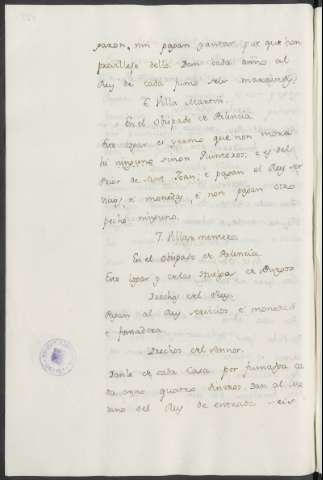 saron, nin pagan yantar por que han
previllejo dello. Dan cada anno al
Rey de cada fumo seis maravedis.
6. Villa Martin.
En el Obispado de Palencia
Este logar es yermo que non mora
hi ninguno sinon Quinteros, e es del
Prior de Sant Joan, e pagan al Rey ser
vicios e moneda, e non pagan otro
pecho ninguno.
7. Villa
En el Obispado de Palencia
Este logar es de las de Burgos
Derechos del Rey.
Pagan al Rey servicios e moneda
e fonsadera.
Derechos del Sennor.
Danle de cada Casa por fumadga ca
da anno quatro dineros. Dan al
del Rey de entrada seis